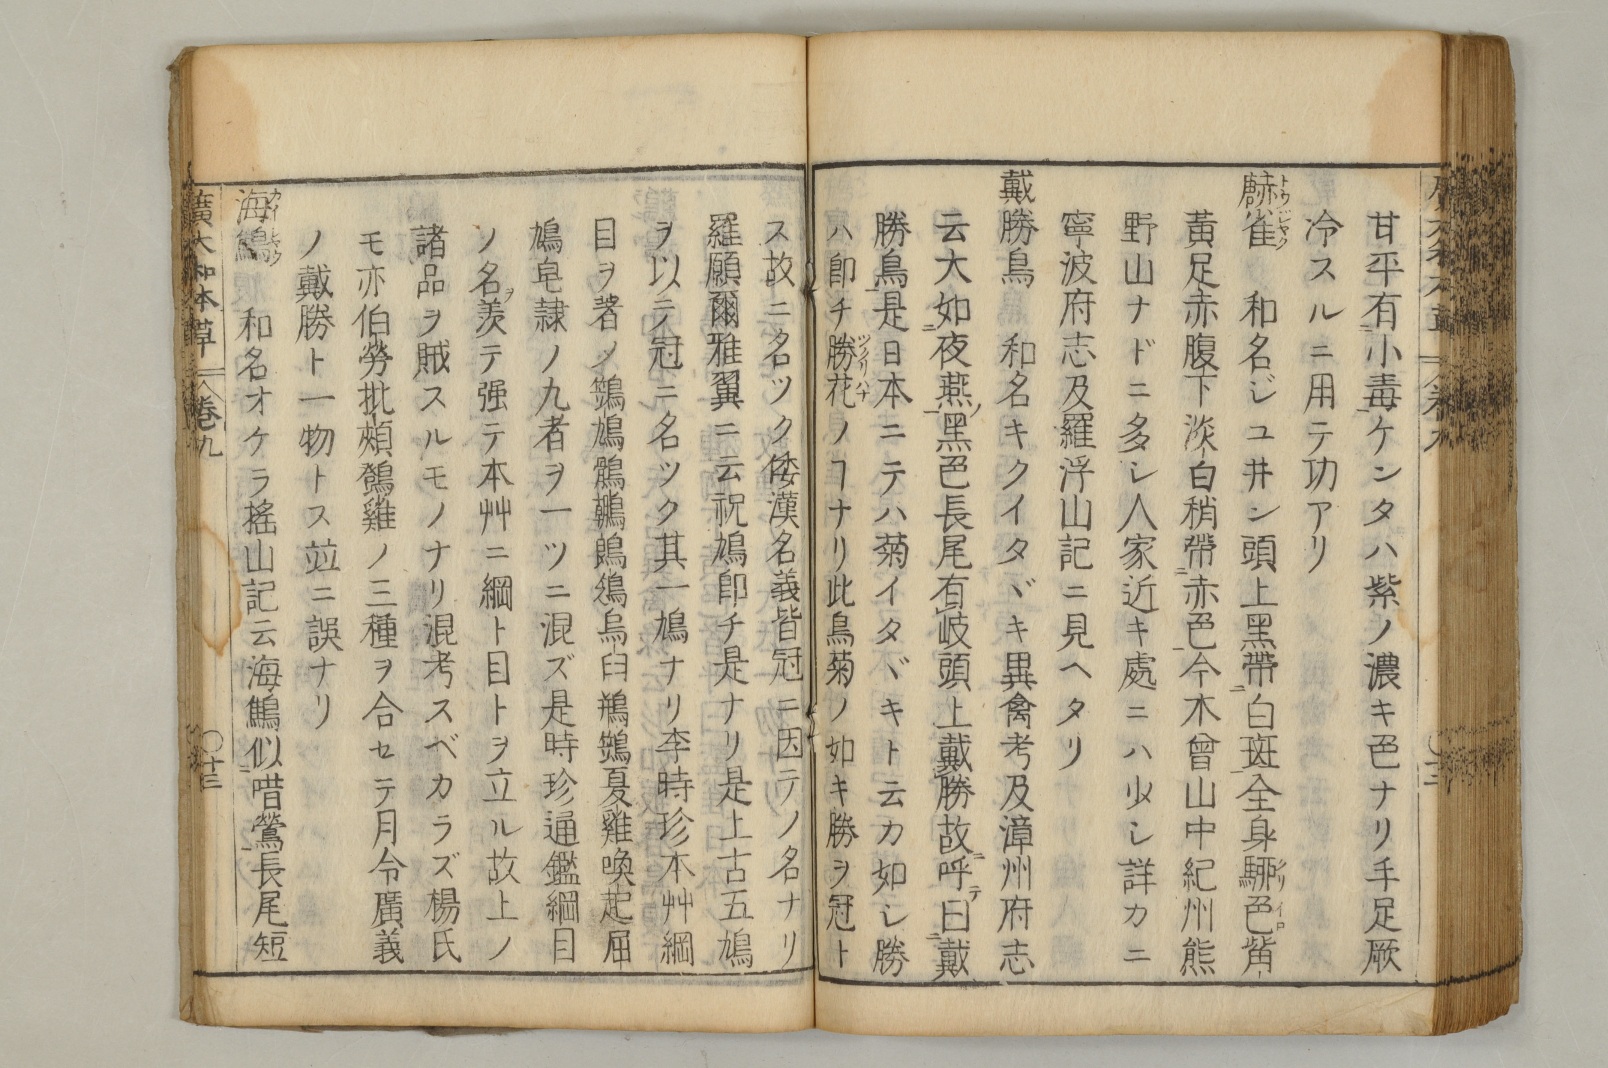 甘平有小毒ケンタハ紫ノ濃キ色ナリ手足厥
冷スルニ用テ功アリ
雀 和名ジユヰン頭上黑帶白斑全身色觜
トウジヤク
クリイロ
黃足赤腹下淡白稍帶赤色今木曾山中紀州熊
野山ナドニ多シ人家近キ處ニハ少シ詳カニ
寧波府志及羅浮山記ニ見ヘタリ
戴勝鳥 和名キクイタヾキ異禽考及漳州府志
云大如夜燕黑色長尾有岐頭上戴勝故呼曰戴
勝鳥是日本ニテハ菊イタヾキト云カ如シ勝
ハ卽チ勝花ノヿナリ此鳥菊ノ如キ勝ヲ冠ト
ツクリハナ
ス故ニ名ツク倭漢名義皆冠ニ因テノ名ナリ
羅願爾雅翼ニ云祝鳩卽チ是ナリ是上古五鳩
ヲ以ニノ冠ニ名ツク其一鳩ナリ李時珍本艸綱
目ヲ著ノ鷑鳩烏臼鷑夏雞喚起屈
鳩皂隷ノ九者ヲ一ツニ混ズ是時珍通鑑綱目
ノ名ヲ羨テ强テ本艸ニ綱ト目トヲ立ル故上ノ
諸品ヲ賊スルモノナリ混考スベカラズ楊氏
モ亦伯勞批頰鷄雞ノ三種ヲ合セテ月令廣義
ノ戴勝ト一物トス竝ニ誤ナリ
海 和名オケラ搖山記云海似唶鶯長尾短
廣大和本草 卷九 〇廿三